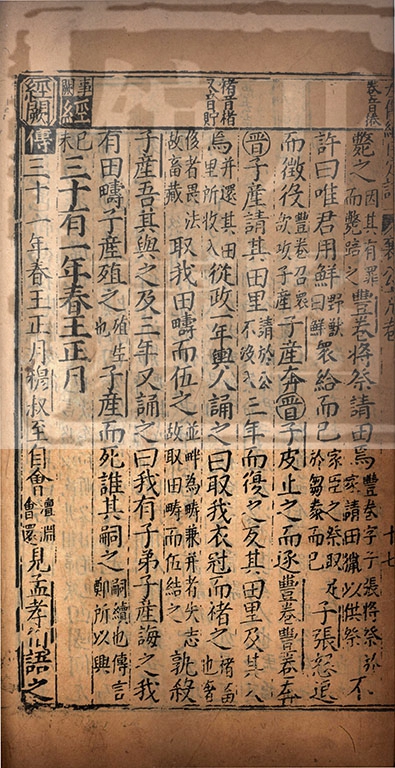 斃之因其有罪而斃踣之豐卷將祭請田焉豐卷字子張將祭於家請田獵以供祭不
許曰唯君用鮮野獸曰鮮衆給而已家臣之祭取於芻豢而已子張怒退
而徵役豐卷召衆欲攻子産子産奔晉子皮止之而逐豐卷豐卷奔
晉子産請其田里請於公不沒入三年而復之反其田里及其入
褚音楮又音貯
焉并還其田里所收入從政一年輿人誦之曰取我衣冠而褚之褚畜也奢
侈者畏法故畜藏取我田疇而伍之並畔為疇兼并者失志故取田疇而伍結之孰殺
子産吾其與之及三年又誦之曰我有子弟子産誨之我
有田疇子産殖之殖生也子産而死誰其嗣之嗣續也傳言鄭所以興
經己未三十有一年春王正月
經闕
傳三十一年春王正月穆叔至自會澶淵會還見孟孝伯語之
十七